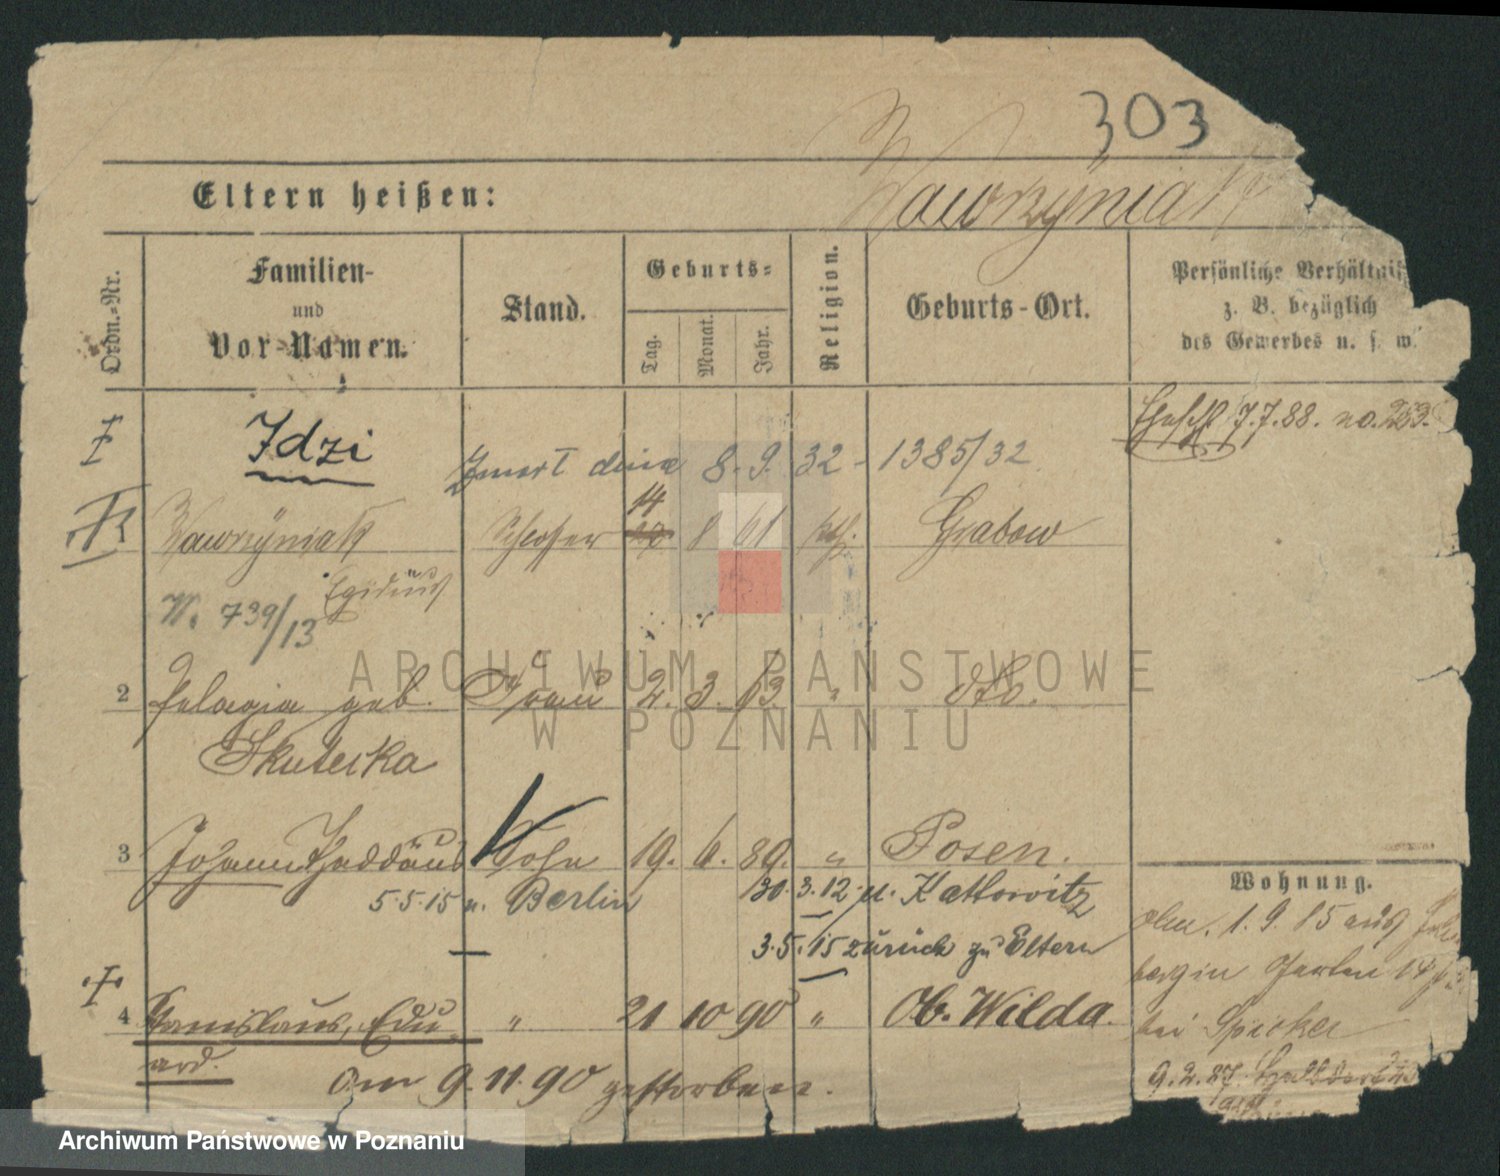 303
Eltern heißen:
Wawrzyniak
Ordn.-Nr.
Familien-
und
Vor-Namen.
Stand.
Geburts-
Tag.
Monat.
Jahr.
Religion.
Geburts-Ort.
Persönliche Verhältnis
z. B. bezüglich
des Gewerbes u. s. w.
7.7.88. no. 253.
Idzi
Zmarł dnia 8.9.32 - 1385/32
14
Wawrzyniak Schlosser 27 8 61 kth. Grabow
Egidius
W. 739/13
2 Pelagia geb. Frau 2. 3. 63. " dto.
Skutecka
3 Johann Thaddäus Sohn 19. 6. 89. " Posen.
5.5.15 n. Berlin 30.3.12. n. Kattowitz
3.5.15 zurück zu Eltern
4 Stanislaus, Edu- " 21 10 90 " Ob. Wilda.
ard.
am 9.11.90 gestorben.
Wohnung.
1.9.85 aus
Garten
bei Spicker
9.2.87
ARCHIWUM PAŃSTWOWE
W POZNANIU
Archiwum Państwowe w Poznaniu